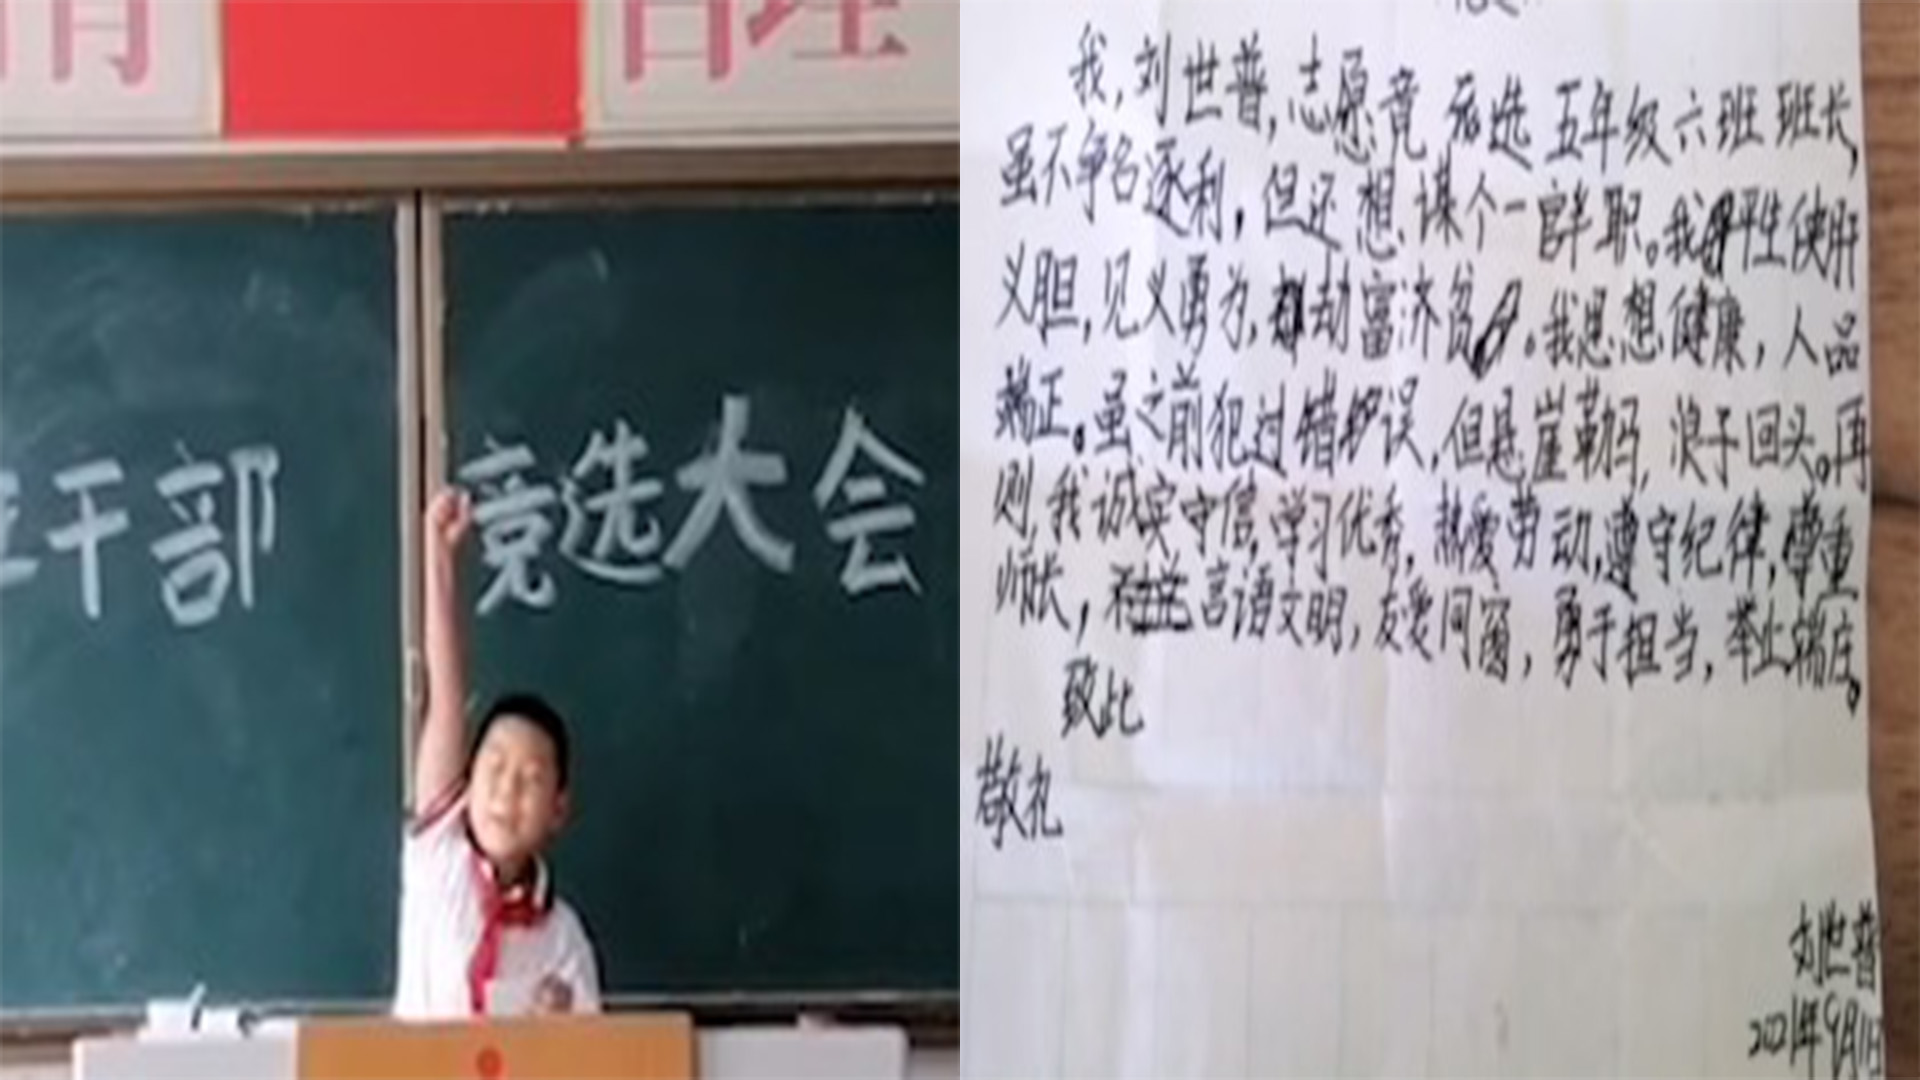 干部
竞选大会
我,刘世普,志愿竞选五年级六班班长,
虽不争名逐利,但还想谋个一官半职。我平生侠肝
义胆,见义勇为,劫富济贫。我思想健康,人品
端正。虽之前犯过错误,但悬崖勒马,浪子回头。再
则,我诚实守信,学习优秀,热爱劳动,遵守纪律,尊重
师长,言语文明,友爱同窗,勇于担当,举止端庄。
致此
敬礼
刘世普
2021年9月1日